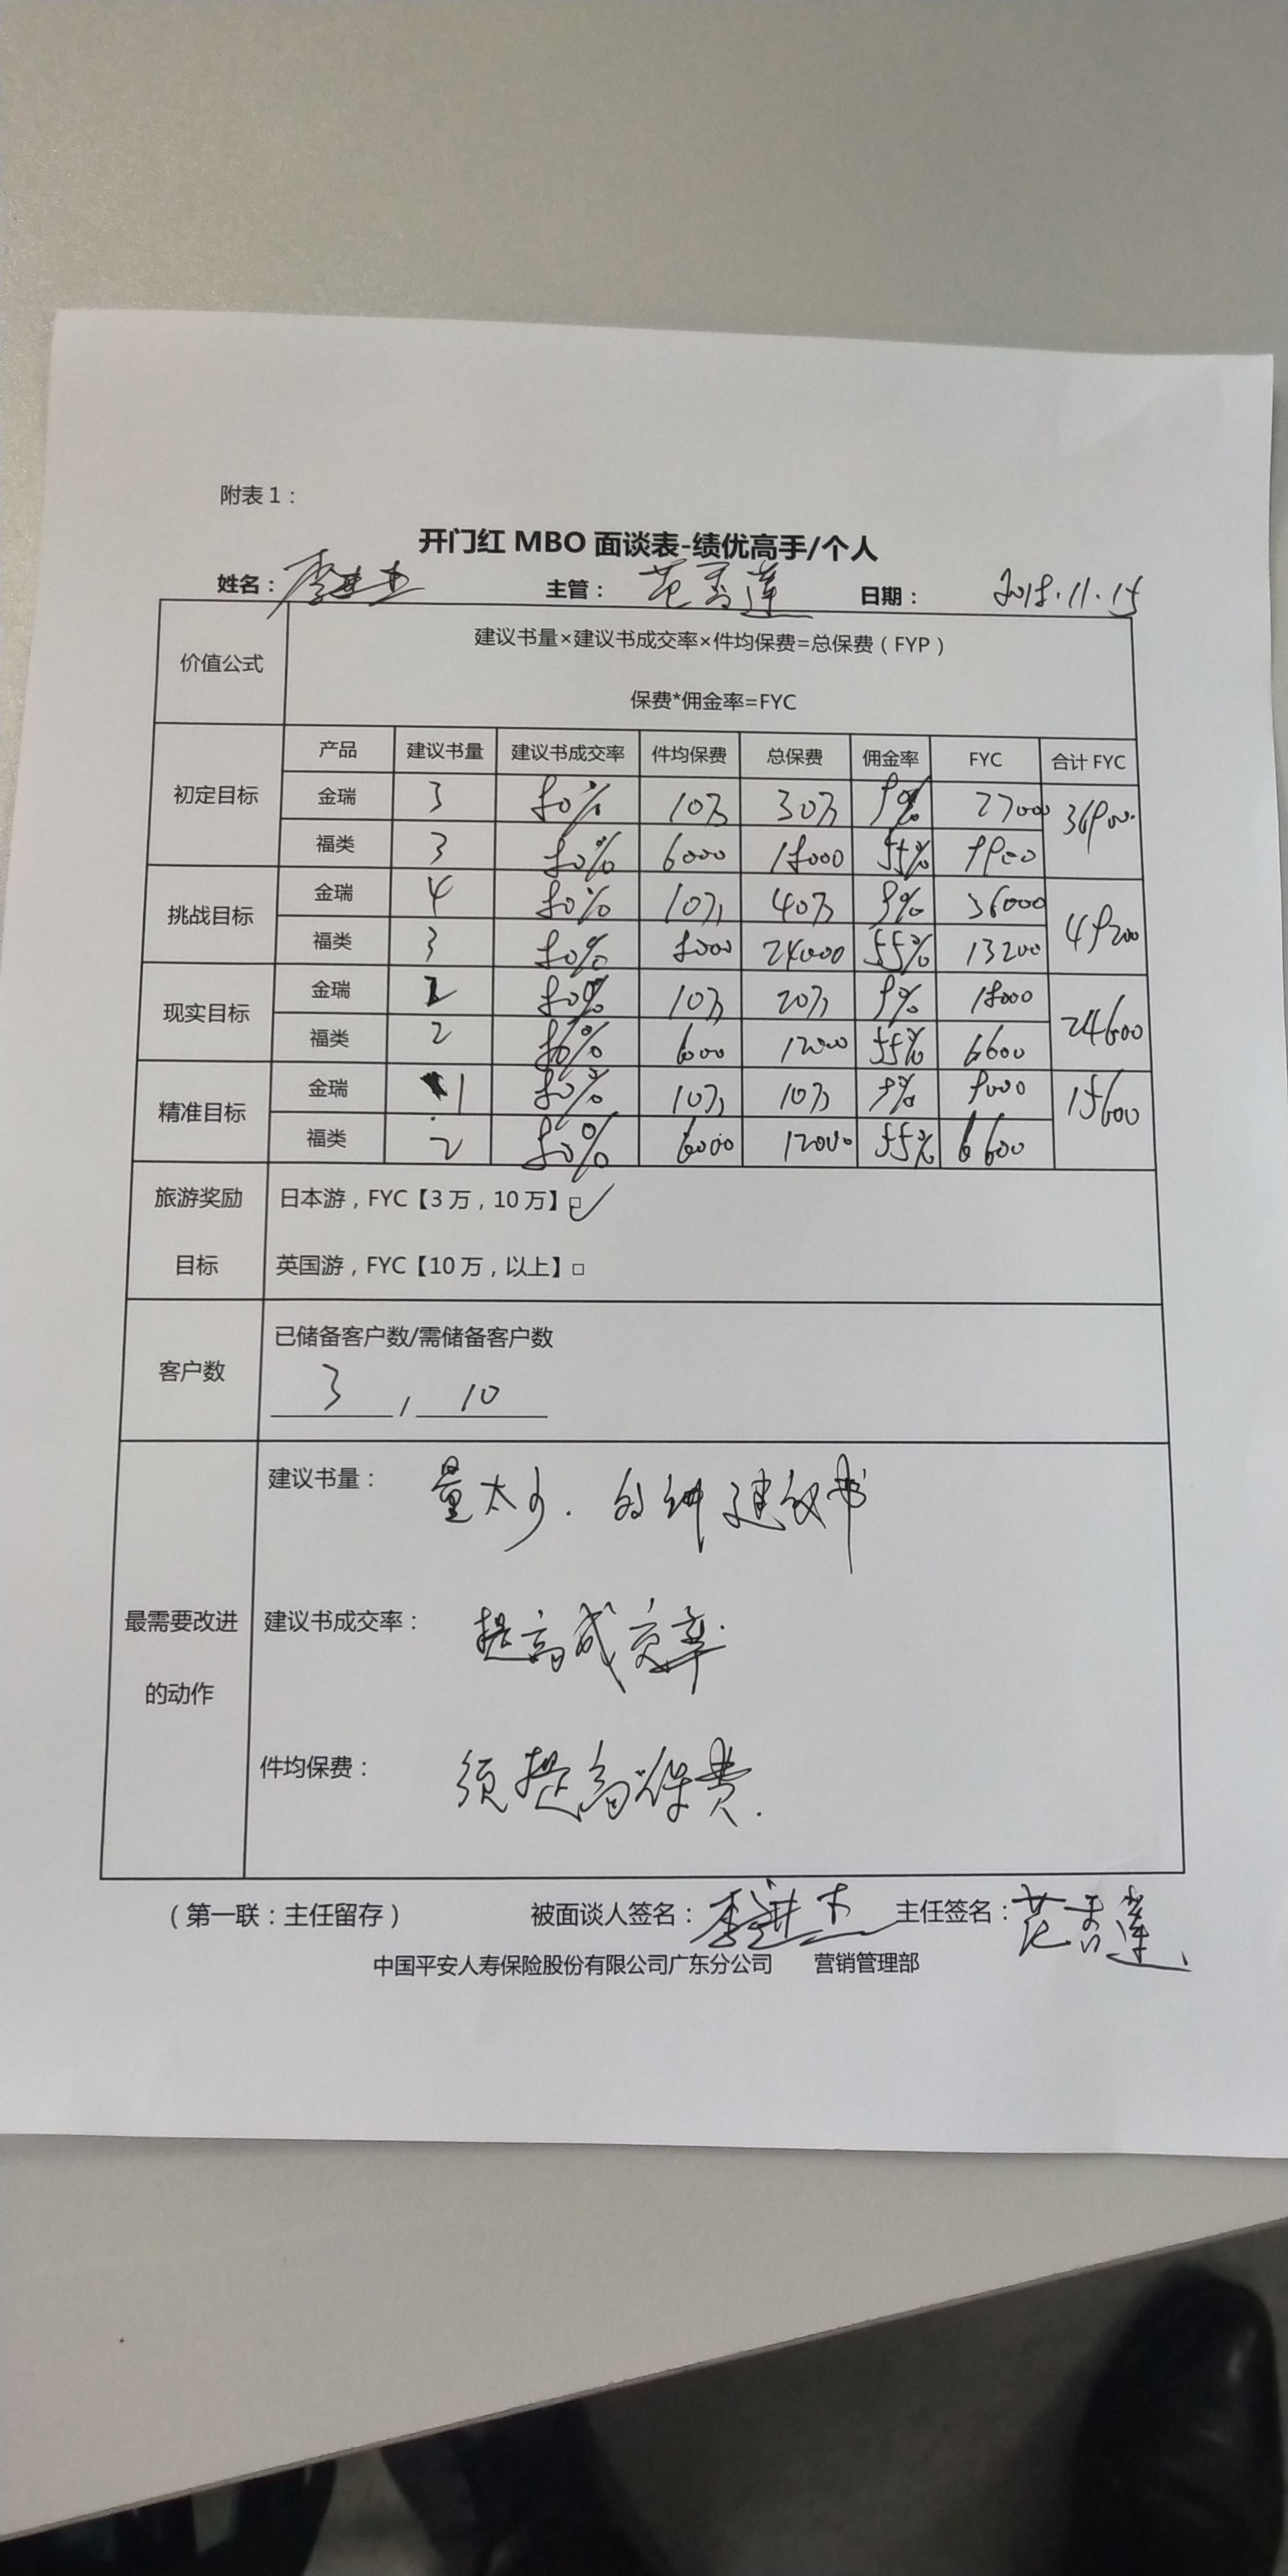 附表1：
开门红 MBO 面谈表-绩优高手/个人
姓名： 李进杰 主管： 范秀莲 日期： 2018.11.15
价值公式 建议书量×建议书成交率×件均保费=总保费（FYP）
保费*佣金率=FYC
产品 建议书量 建议书成交率 件均保费 总保费 佣金率 FYC 合计 FYC
初定目标 金瑞 3 80% 10万 30万 9% 27000 36900
福类 3 80% 6000 18000 55% 9900
挑战目标 金瑞 4 80% 10万 40万 9% 36000 49200
福类 3 80% 8000 24000 55% 13200
现实目标 金瑞 2 80% 10万 20万 9% 18000 24600
福类 2 80% 6000 12000 55% 6600
精准目标 金瑞 1 80% 10万 10万 9% 9000 15600
福类 2 80% 6000 12000 55% 6600
旅游奖励 日本游，FYC【3万，10万】□✓
目标 英国游，FYC【10万，以上】□
客户数 已储备客户数/需储备客户数
3 / 10
建议书量： 量太少. 建议书
最需要改进 建议书成交率： 提高成交率.
的动作
件均保费： 须提高保费.
（第一联：主任留存） 被面谈人签名： 李进杰 主任签名： 范秀莲
中国平安人寿保险股份有限公司广东分公司 营销管理部